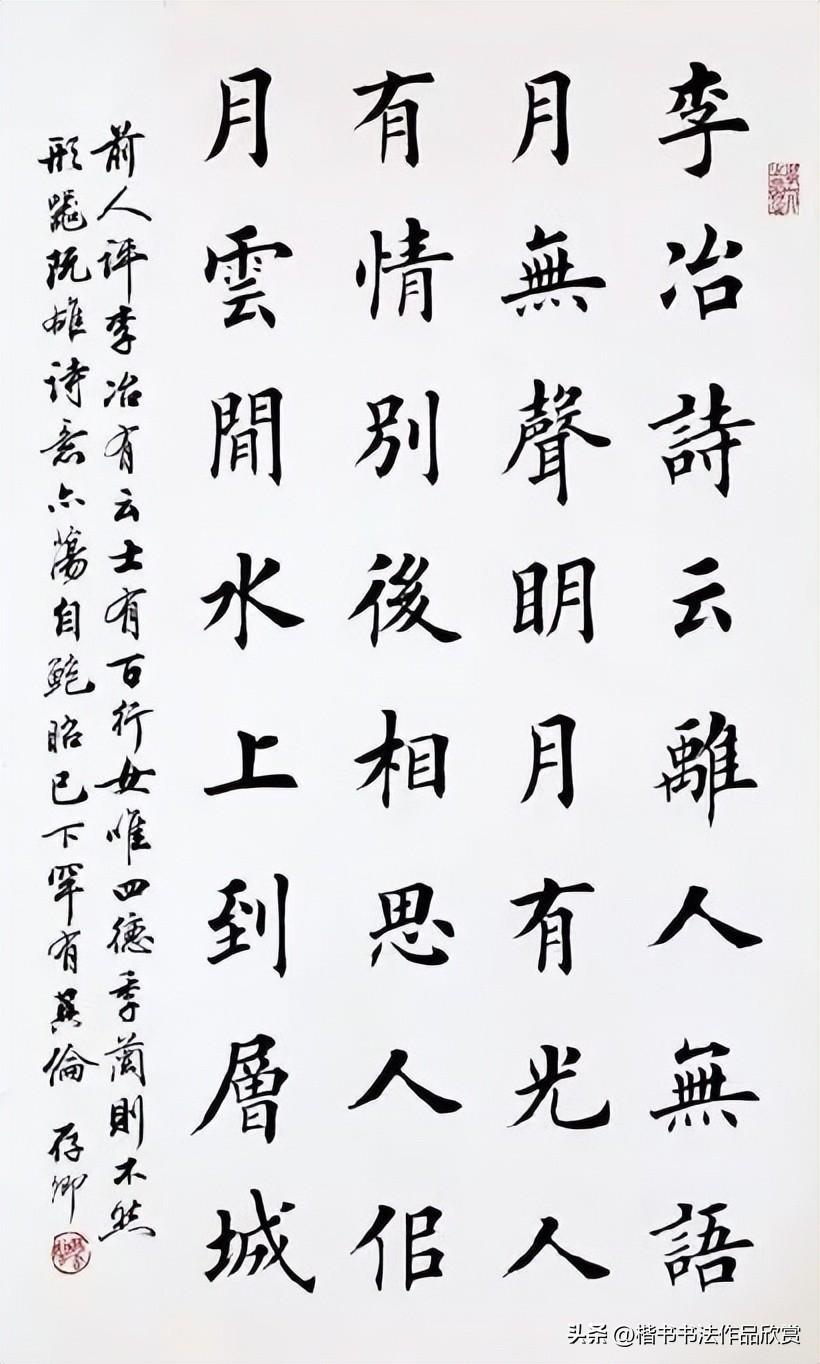 李冶詩云離人無語
月無聲明月有光人
有情別後相思人佀
月雲閒水上到層城
前人評李冶有云士有百行女唯四德季蘭則不然
形器既雄詩意亦蕩自鮑昭已下罕有其倫 存卿
头条 @楷书书法作品欣赏